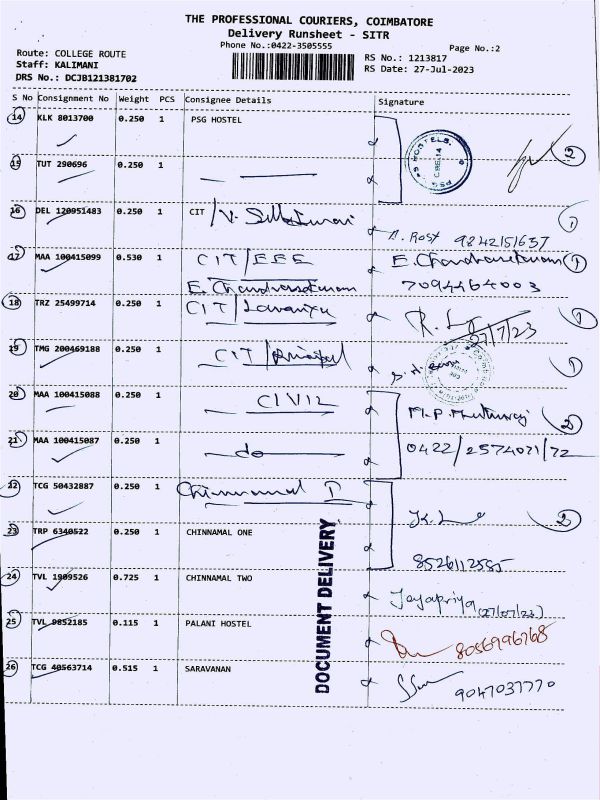 THE PROFESSIONAL COURIERS, COIMBATORE
Delivery Runsheet - SITR
Phone No.:0422-3505555
Page No.:2
Route: COLLEGE ROUTE
Staff: KALIMANI
DRS No.: DCJB121381702
RS No.: 1213817
RS Date: 27-Jul-2023
S No Consignment No Weight PCS Consignee Details Signature
14 KLK 8013700 0.250 1 PSG HOSTEL
2
15 TUT 290696 0.250 1
PSG HOSTELS
16 DEL 120951483 0.250 1 CIT 1
9842151637
17 MAA 100415099 0.530 1 CIT/EEE E. Chandrasekaran 1
E. Chandrasekaran 7094464003
18 TRZ 25499714 0.250 1 CIT/Lavanya 1
27/7/23
19 TMG 200469188 0.250 1 CIT/ 1
20 MAA 100415088 0.250 1 CIVIL 2
21 MAA 100415087 0.250 1 do 0422/2574071/72
22 TCG 50432887 0.250 1 Chinnamal I
2
23 TRP 6340522 0.250 1 CHINNAMAL ONE
8526112585
24 TVL 1909526 0.725 1 CHINNAMAL TWO Jayapriya (27/07/23)
25 TVL 9852185 0.115 1 PALANI HOSTEL 8056996768
26 TCG 40563714 0.515 1 SARAVANAN 9047037770
DOCUMENT DELIVERY